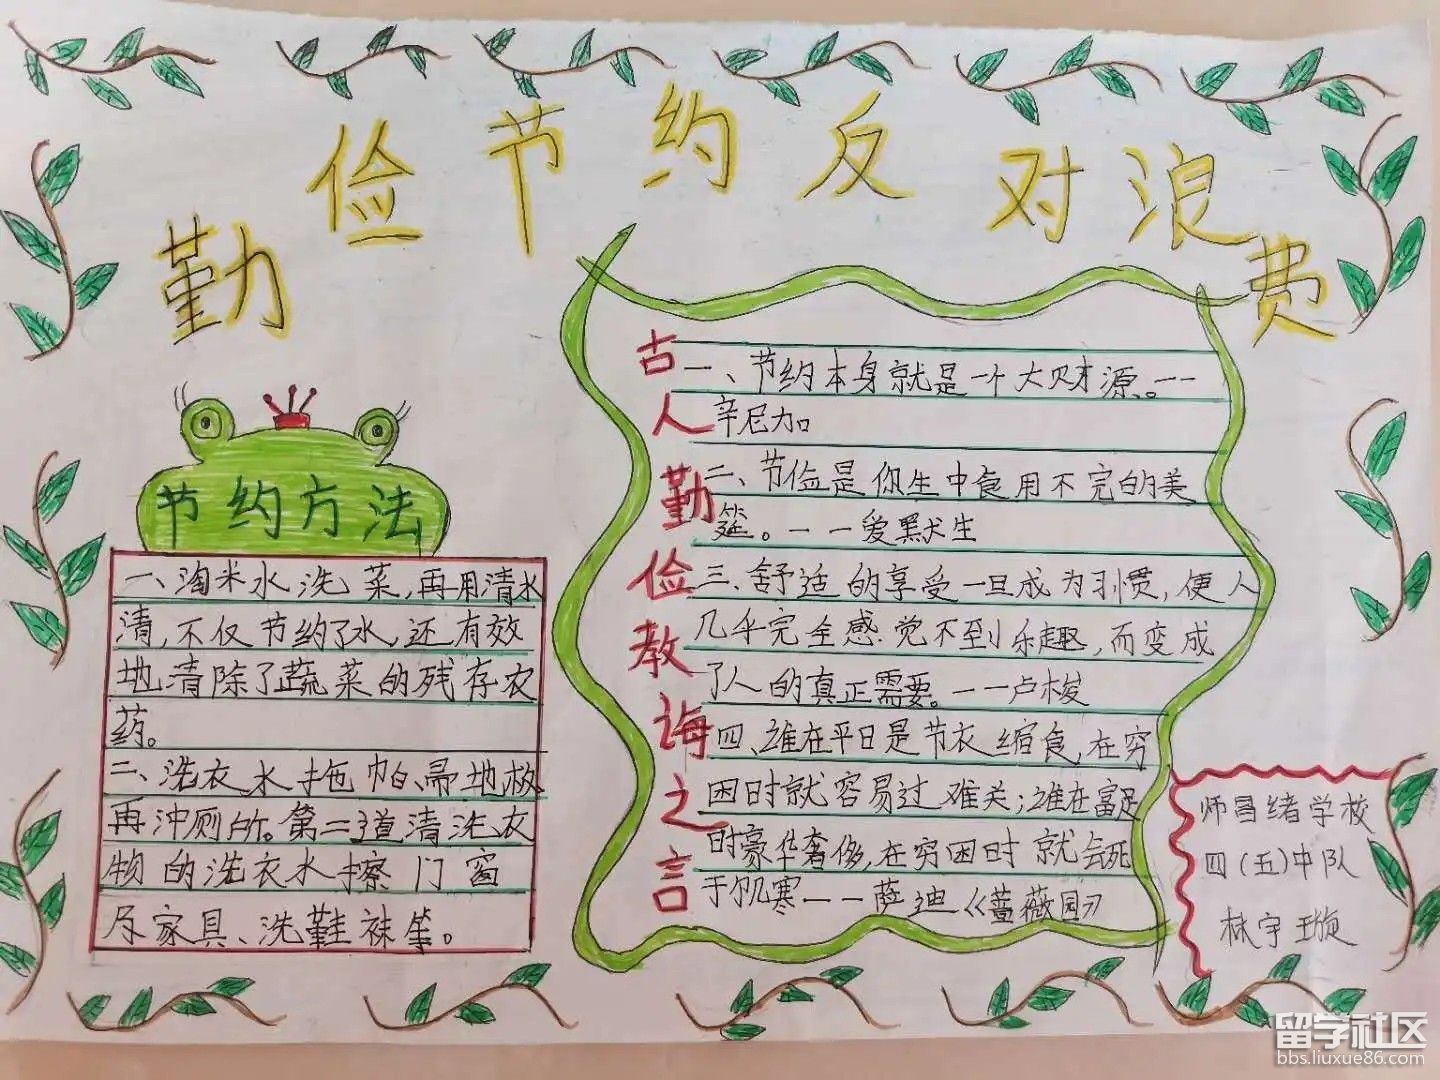 勤俭节约反对浪费
节约方法
一、淘米水洗菜,再用清水
清,不仅节约了水,还有效
地清除了蔬菜的残存农
药。
二、洗衣水拖帕、帚地板
再冲厕所。第二道清洗衣
物的洗衣水擦门窗
及家具、洗鞋袜等。
古人勤俭教诲之言
一、节约本身就是一个大财源。——
辛尼加
二、节俭是你生中食用不完的美
筵。——爱默生
三、舒适的享受一旦成为习惯,便人
几乎完全感觉不到乐趣,而变成
了人的真正需要。——卢梭
四、谁在平日是节衣缩食,在穷
困时就容易过难关;谁在富足
时豪华奢侈,在穷困时就会死
于饥寒——萨迪《蔷薇园》
师昌绪学校
四(五)中队
林宇璇
留学社区
bbs.liuxue86.com